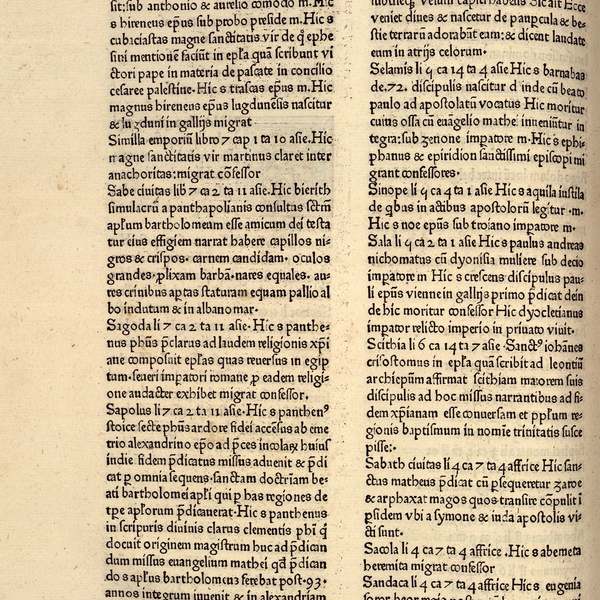 sit: sub anthonio & aurelio comodo m. Hic
s hireneus ep̄us sub probo preside m. Hic s
cubaciastas magne sanctitatis vir de q̄ ephe
sini mentionē faciūt in ep̄la quā scribunt vi
ctori pape in materia de pascate in concilio
cesaree palestine. Hic s trascas ep̄us m. Hic
magnus hireneus ep̄us lugdunēsis nascitur
& lugduni in gallijs migrat
Simılla emporiū libro 7 cap 1 ta 10 asie. Hic
magne sanctitatis vir martinus claret inter
anachoritas: migrat cōfessor
Sabe ciuitas lib 7 ca 2 ta 11 asie. Hic bierith
simulacrū a panthapolianis consultus sctm̄
ap̄lum bartholomeum esse amicum dei testa
tur eius effigiem narrat habere capillos ni-
gros & crispos. carnem candidam. oculos
grandes. ꝓlixam barbā. nares equales. au-
res crinibus aptas staturam equam pallio al
bo indutam & in albano mar.
Sagoda li 7 ca 2 ta 11 asie. Hic s panthe-
nus phūs p̄clarus ad laudem religionis xp̄i
ane composuit ep̄las quas reuersus in egip
tum. seueri imp̄atori romane ꝓ eadem religi-
one audacter exhibet migrat confessor.
Sapolus li 7 ca 2 ta 11 asie. Hic s panthenꝰ
stoice secte phūs ardore fidei accēsus ab eme
trio alexandrino ep̄o ad p̄ces incolaꝝ huius
indie fidem p̄dicatus missus aduenit & p̄di
cat ꝑ omnia sequens. sanctam doctriam be-
ati bartholomei ap̄li qui ꝑ has regiones de
tpe ap̄lorum p̄dicauerat. Hic s panthenus
in scripturis diuinis clarus clementis phı̄ q̄
docuit originem magistrum huc ad p̄dican
dum missus euangelium mathei qd̄ p̄dican
do s ap̄lus bartholomeus ferebat post. 93.
annos integrum inuenit & in alexandriam
veniet diues & nascetur de paupcula & be-
stie terrarū adorabūt eum: & dicent laudate
eum in atrijs celorum.
Selamis li q̄ ca 14 ta 4 asie Hic s barnabas
de. 72. discipulis nascitur d inde cū beato
paulo ad apostolatū vocatus Hic moritur
cuius ossa cū euāgelio mathei inueniūtur in
tegra: sub zenone impatore m. Hic s ephi-
phanus & epiridion sanctissimi episcopi mi
grant confessores.
Sinope li q̄ ca 4 ta 1 asie Hic s aquila iustila
de qbus in actibus apostolorū legitur. m.
Hic s noe ep̄us sub troiano impatore m.
Sala li q̄ ca 2 ta 1 asie Hic s paulus andreas
nichomatus cū dyonisia muliere sub decio
impatore m Hic s crescens discipulus pau-
li ep̄us vienne in gallijs primo p̄dicat dein
de hic moritur confessor Hic dyocletianus
impator relicto imperio in priuato viuit.
Scithia li 6 ca 14 ta 7 asie. Sanctꝰ iohānes
crisostomus in ep̄la quā scribit ad leontiū
archiep̄um affirmat scithiam maiorem suis
discipulis ad hoc missus narrantibus ad fi-
dem xp̄ianam esse conuersam et pp̄lum re-
gionis baptismum in nomīe trinitatis susce
pisse:.
Sabath ciuitas li 4 ca 7 ta 4 affrice Hic san-
ctus matheus p̄dicat cū p̄sequeretur zaroe
& arphaxat magos quos transire cōpulit ī
p̄sidem vbi a symone & iuda apostolis vi-
cti sunt.
Sacola li 4 ca 7 ta 4 affrice. Hic s abemeta
heremita migrat confessor
Sandaca li 4 ca 7 ta 4 affrice Hic s eugenia